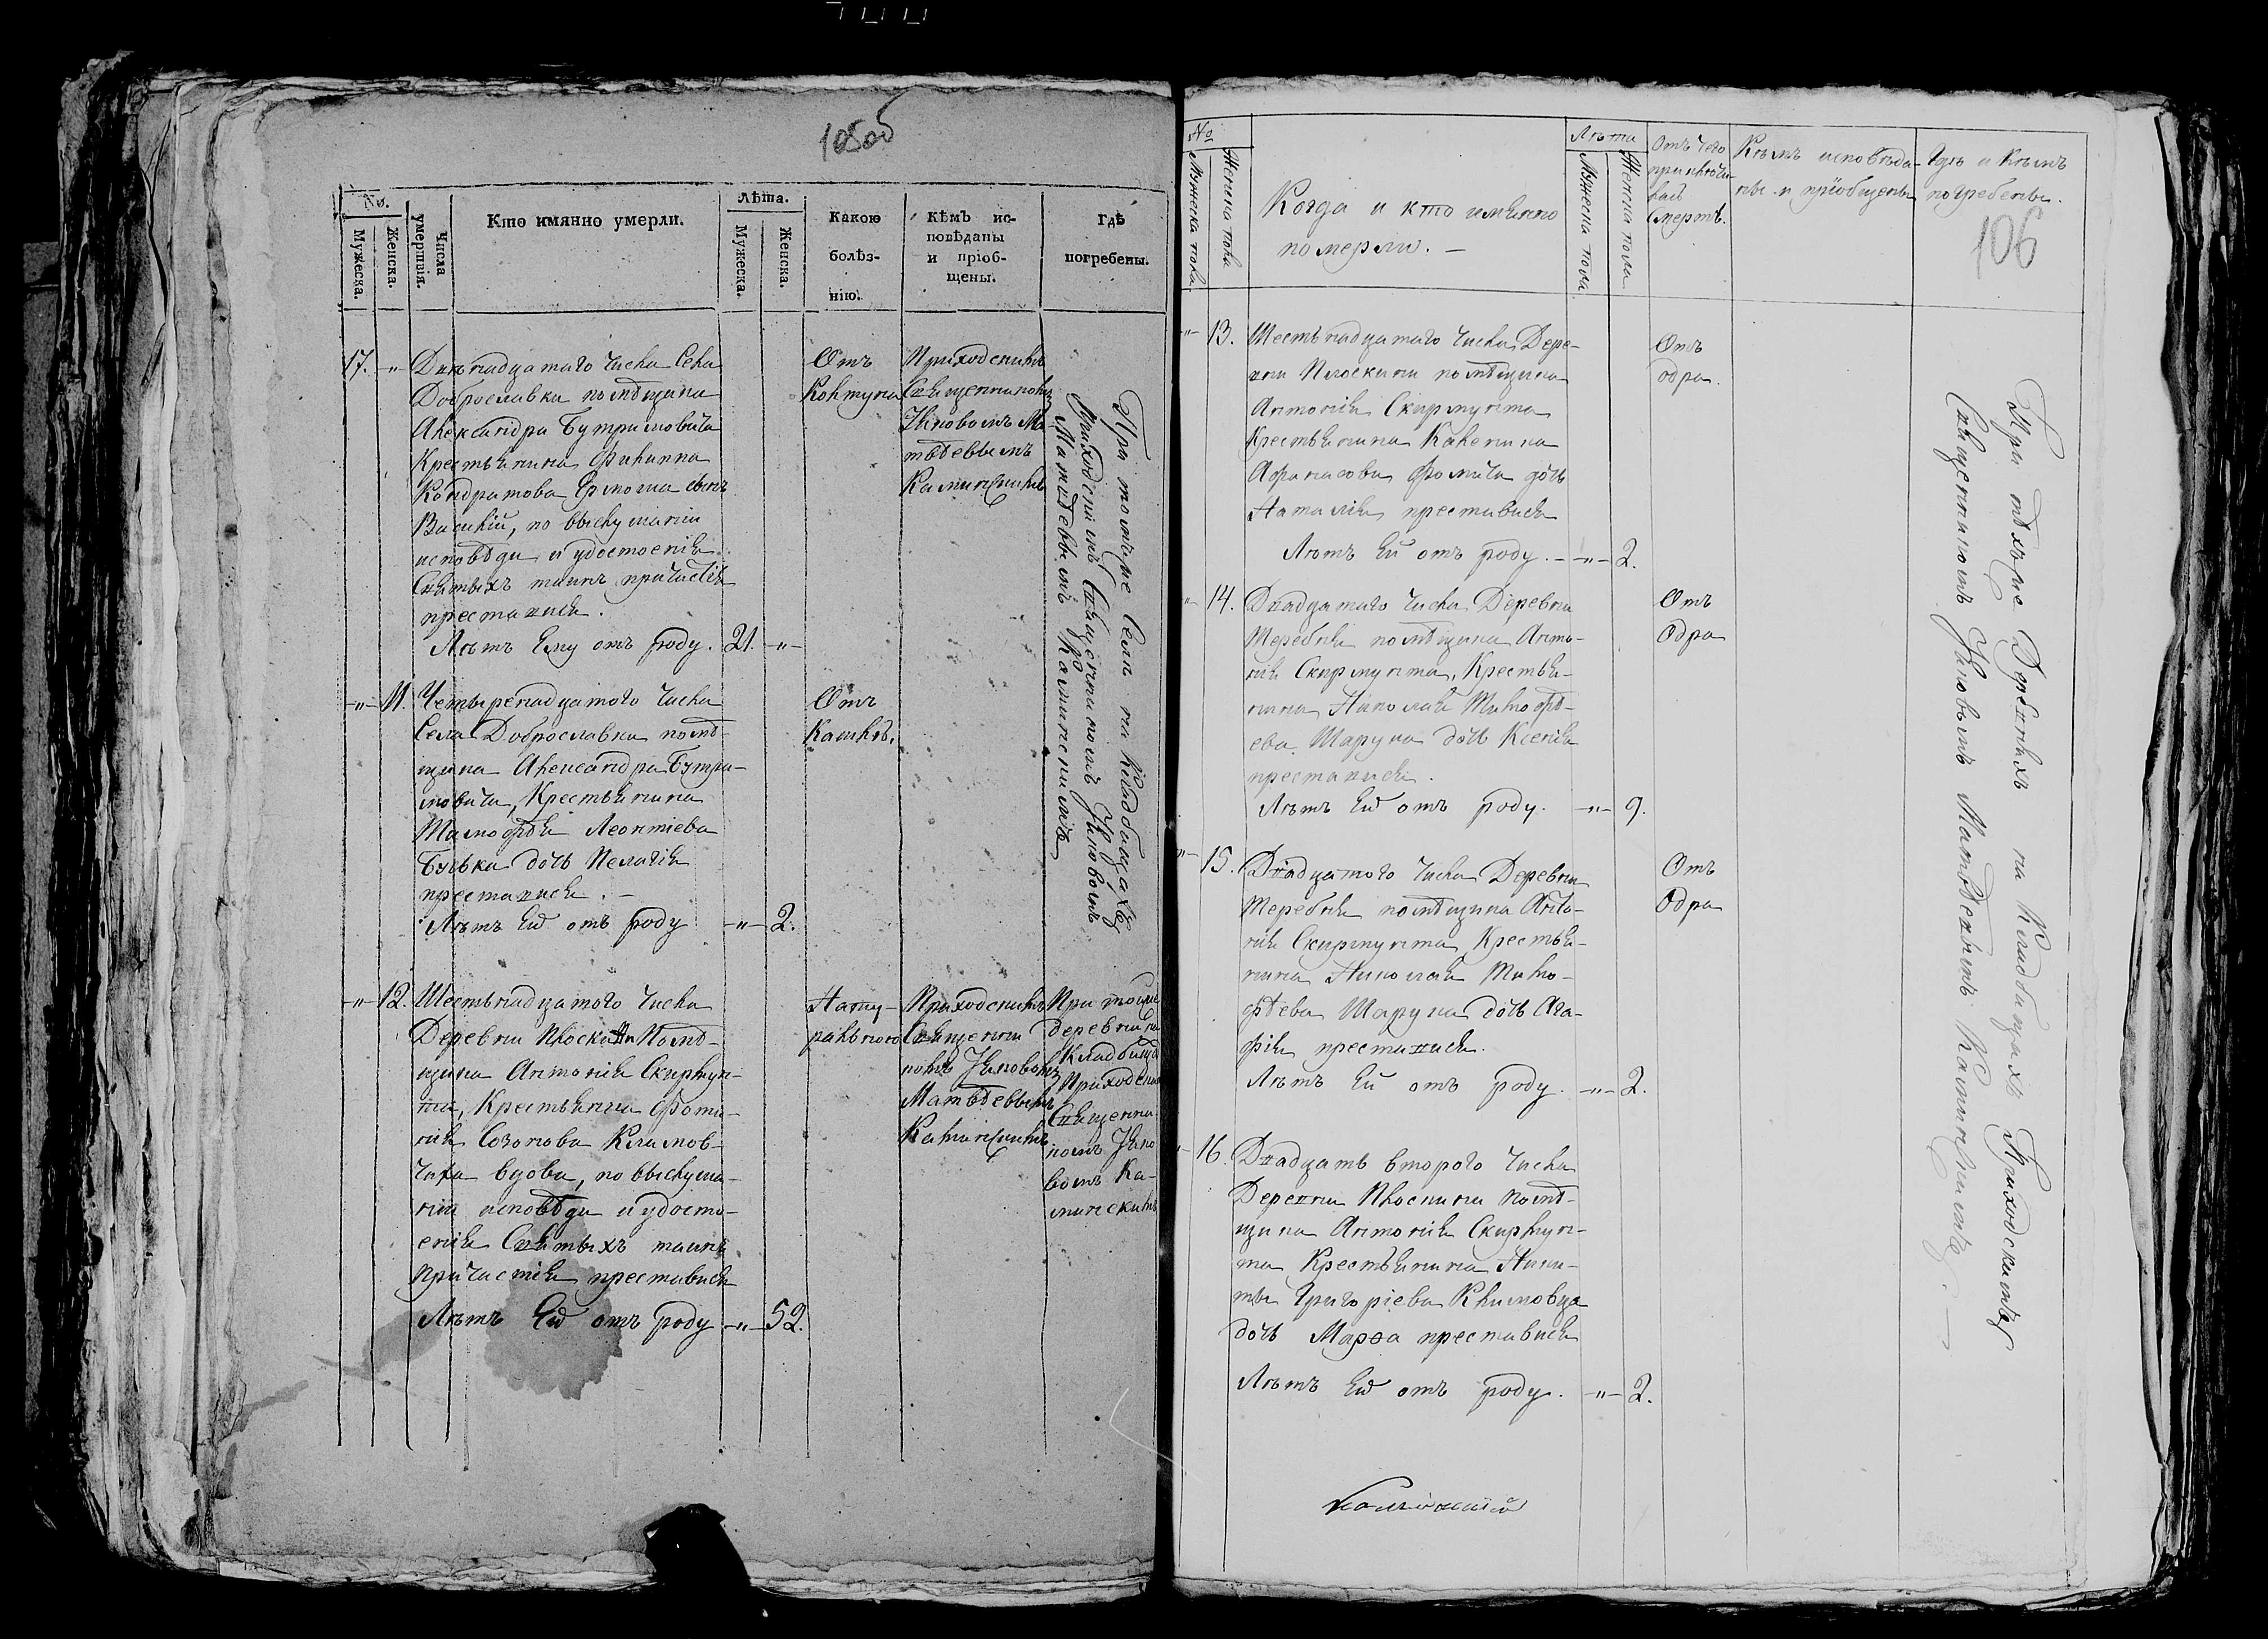 105об
№.
Мужеска.
Женска.
Числа умершія.
Кто имянно умерли.
Лѣта.
Мужеска.
Женска.
Какою
болѣз-
нію.
Кѣмъ ис-
повѣданы
и пріоб-
щены.
Гдѣ
погребены.
17. -"-
Двѣнадцатаго числа Села
Доброславки помѣщика
Александра Бутримовича
Крестьянина Филиппа
Кондратова сынъ
Василій, по выслушаніи
исповѣди и удостоенія
Святыхъ таинъ причастія
преставися.
Лѣтъ Ему отъ роду. 21. -"-
Отъ
Колтуна
Приходскимъ
Священникомъ
Яковомъ Ма-
твѣевымъ
Каминскимъ
При томъже Селѣ на кладбищахъ
Приходскимъ Священникомъ Яковомъ
Матвѣевымъ Каминскимъ
-"- 11. Четыренадцатого числа
Села Доброславки помѣ-
щика Александра Бутри-
мовича, Крестьянина
Тимофѣя Леонтіева
Бузька дочь Пелагія
преставися. -
Лѣтъ Ей отъ роду -"- 2.
Отъ
Кашля.
-"- 12. Шестьнадцатого числа
Деревни Плоскини Помѣ-
щика Антонія Скирмун-
та, Крестьянина Фоти-
нія Созонова Климов-
чука вдова, по выслуша-
ніи исповѣди и удосто-
енія Святыхъ таинъ
причастія преставися
Лѣтъ Ей отъ роду -"- 52.
Нату-
рально
Приходскимъ
Священни
комъ Яковомъ
Матвѣевымъ
Каминскимъ
При тойже
деревни на
Кладбищѣ
Приходскимъ
Священни
комъ Яко
вомъ Ка-
минскимъ
106
№
Мужеска пола
Женска пола
Когда и кто имянно
померли. -
Лѣта
Мужеска пола
Женска пола
Отъ чего
приключи-
лась
смерть.
Кѣмъ исповѣда-
ны и пріобщены
Гдѣ и Кѣмъ
погребены.
-"- 13. Шестьнадцатаго числа Дере-
вни Плоскини помѣщика
Антонія Скирмунта
Крестьянина Каленика
Афанасова Фомича дочь
Наталія преставися
Лѣтъ Ей отъ роду. - -"- 2.
Отъ
одра.
-"- 14. Двадцатаго числа Деревни
Теребня помѣщика Анто-
нія Скирмунта, Крестья-
нина Николая Тимофѣ-
ева Шаруна дочь Ксенія
преставися.
Лѣтъ Ей отъ роду. -"- 9.
Отъ
Одра
-"- 15. Двадцатого числа Деревни
Теребня помѣщика Анто-
нія Скирмунта Крестья-
нина Николая Тимо-
фѣева Шаруна дочь Ага-
фія преставися.
Лѣтъ Ей отъ роду. -"- 2.
Отъ
Одра
-"- 16. Двадцать второго числа
Деревни Плоскини помѣ-
щика Антонія Скирмун-
та Крестьянина Ники-
ты Григоріева Климовца
дочь Марѳа преставися
Лѣтъ Ей отъ роду. -"- 2.
При тѣхъже Деревняхъ на Кладбищахъ Приходскимъ
Священникомъ Яковомъ Матвѣевымъ Каминскимъ. -
Каминскій